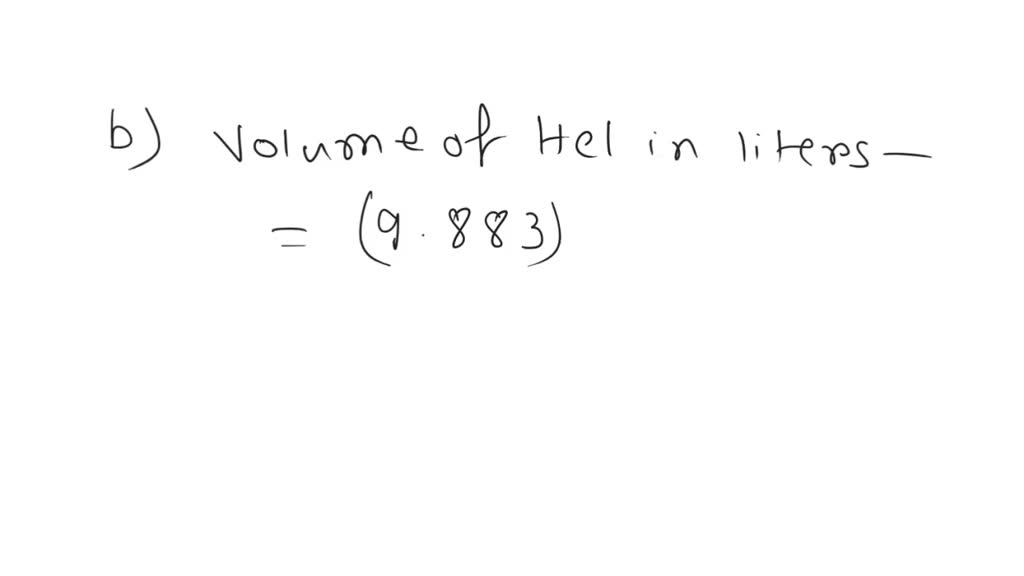 b) Volume of Hcl in liters —
= (9.883)